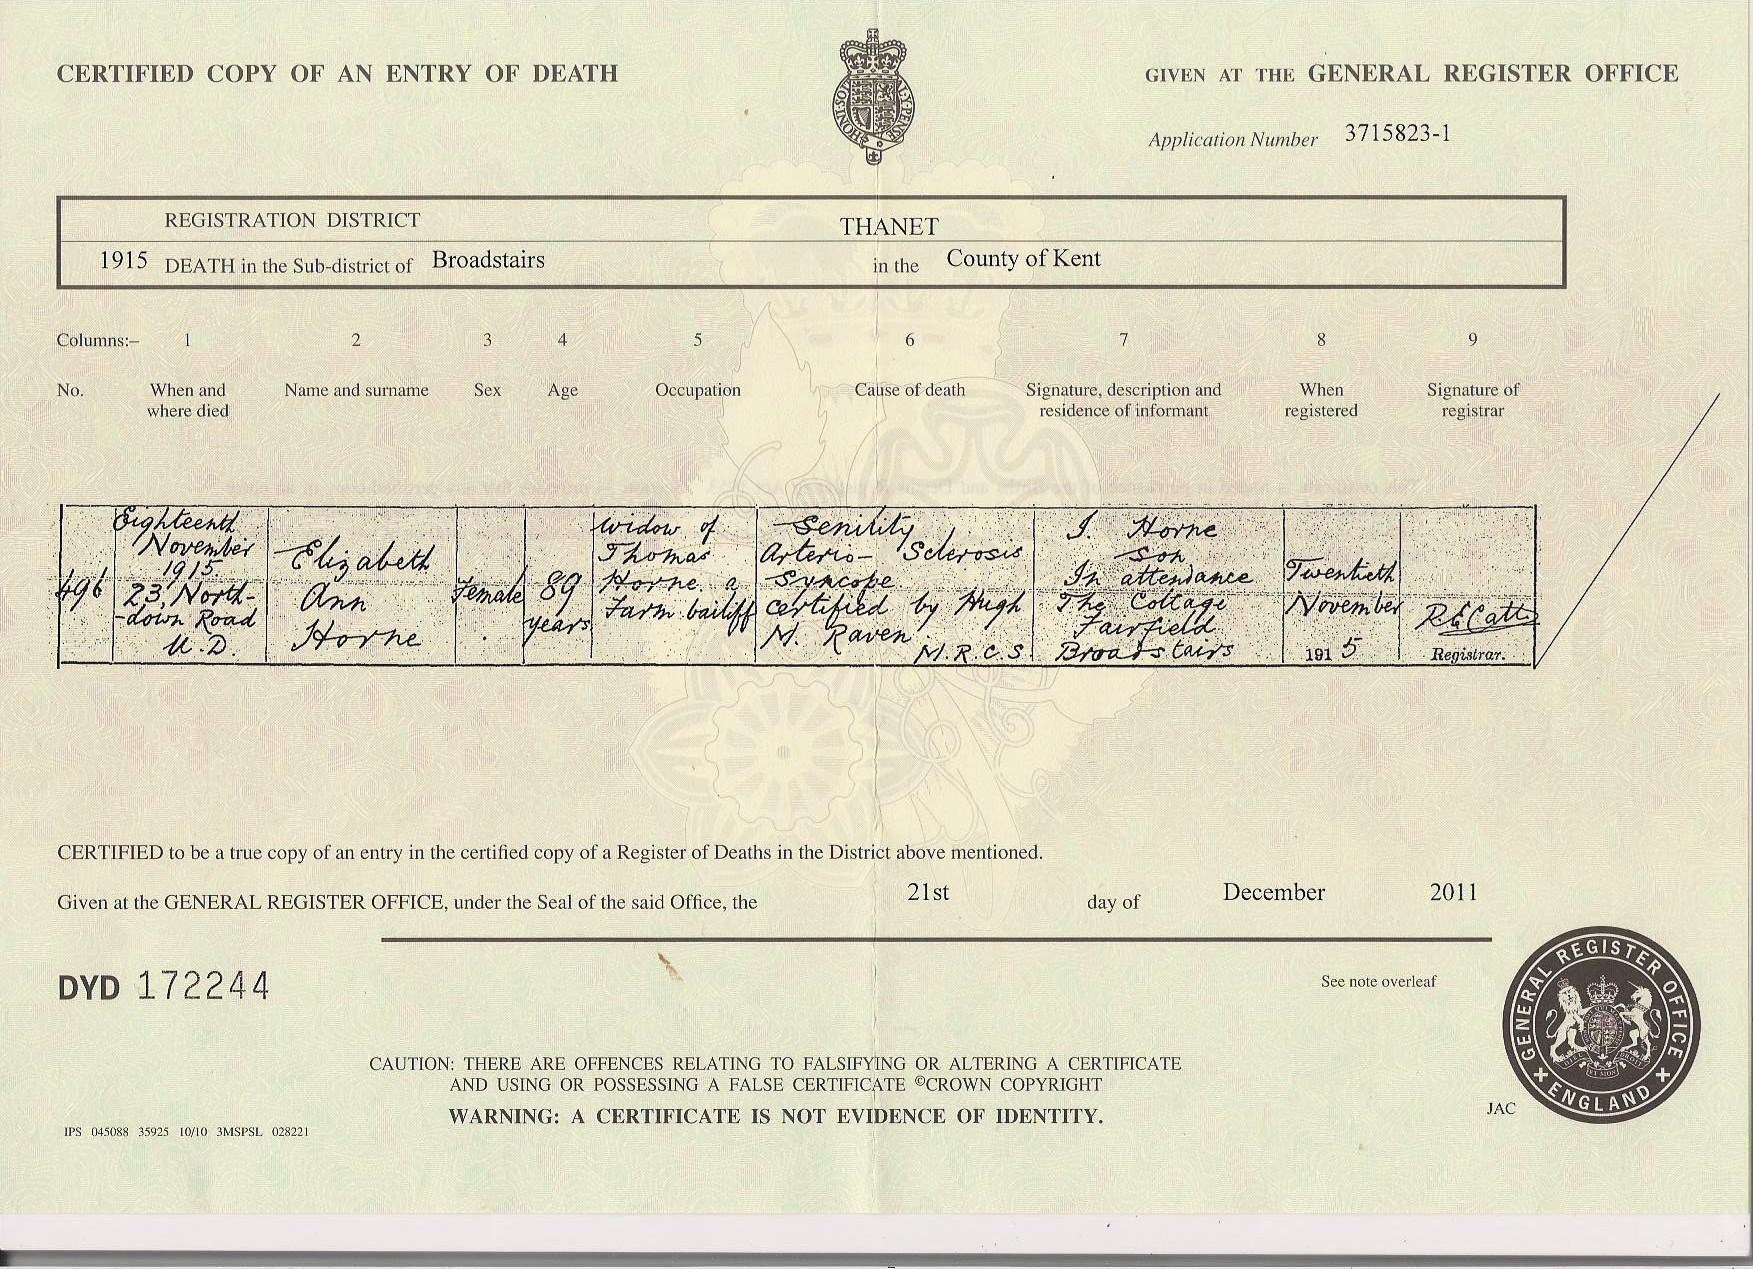 CERTIFIED COPY OF AN ENTRY OF DEATH
GIVEN AT THE GENERAL REGISTER OFFICE
HONI·SOIT
MAL·Y·PENSE
Application Number 3715823-1
REGISTRATION DISTRICT THANET
1915 DEATH in the Sub-district of Broadstairs in the County of Kent
Columns:– 1 2 3 4 5 6 7 8 9
No. When and where died Name and surname Sex Age Occupation Cause of death Signature, description and residence of informant When registered Signature of registrar
496
Eighteenth
November
1915
23, North-
-down Road
U.D.
Elizabeth
Ann
Horne
Female
89
years
Widow of
Thomas
Horne a
Farm bailiff
Senility
Arterio- Sclerosis
Syncope
certified by Hugh
M. Raven
M.R.C.S
J. Horne
Son
In attendance
The Cottage
Fairfield
Broadstairs
Twentieth
November
1915
R E Catt
Registrar.
CERTIFIED to be a true copy of an entry in the certified copy of a Register of Deaths in the District above mentioned.
Given at the GENERAL REGISTER OFFICE, under the Seal of the said Office, the 21st day of December 2011
DYD 172244
See note overleaf
GENERAL REGISTER OFFICE
ENGLAND
CAUTION: THERE ARE OFFENCES RELATING TO FALSIFYING OR ALTERING A CERTIFICATE
AND USING OR POSSESSING A FALSE CERTIFICATE ©CROWN COPYRIGHT
WARNING: A CERTIFICATE IS NOT EVIDENCE OF IDENTITY.
JAC
IPS 045088 35925 10/10 3MSPSL 028221